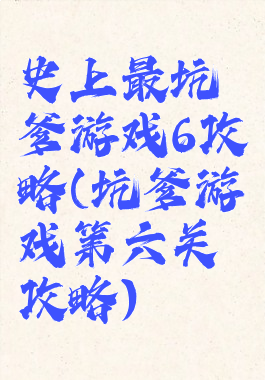 史上最坑
爹游戏6攻
略(坑爹游
戏第六关
攻略)